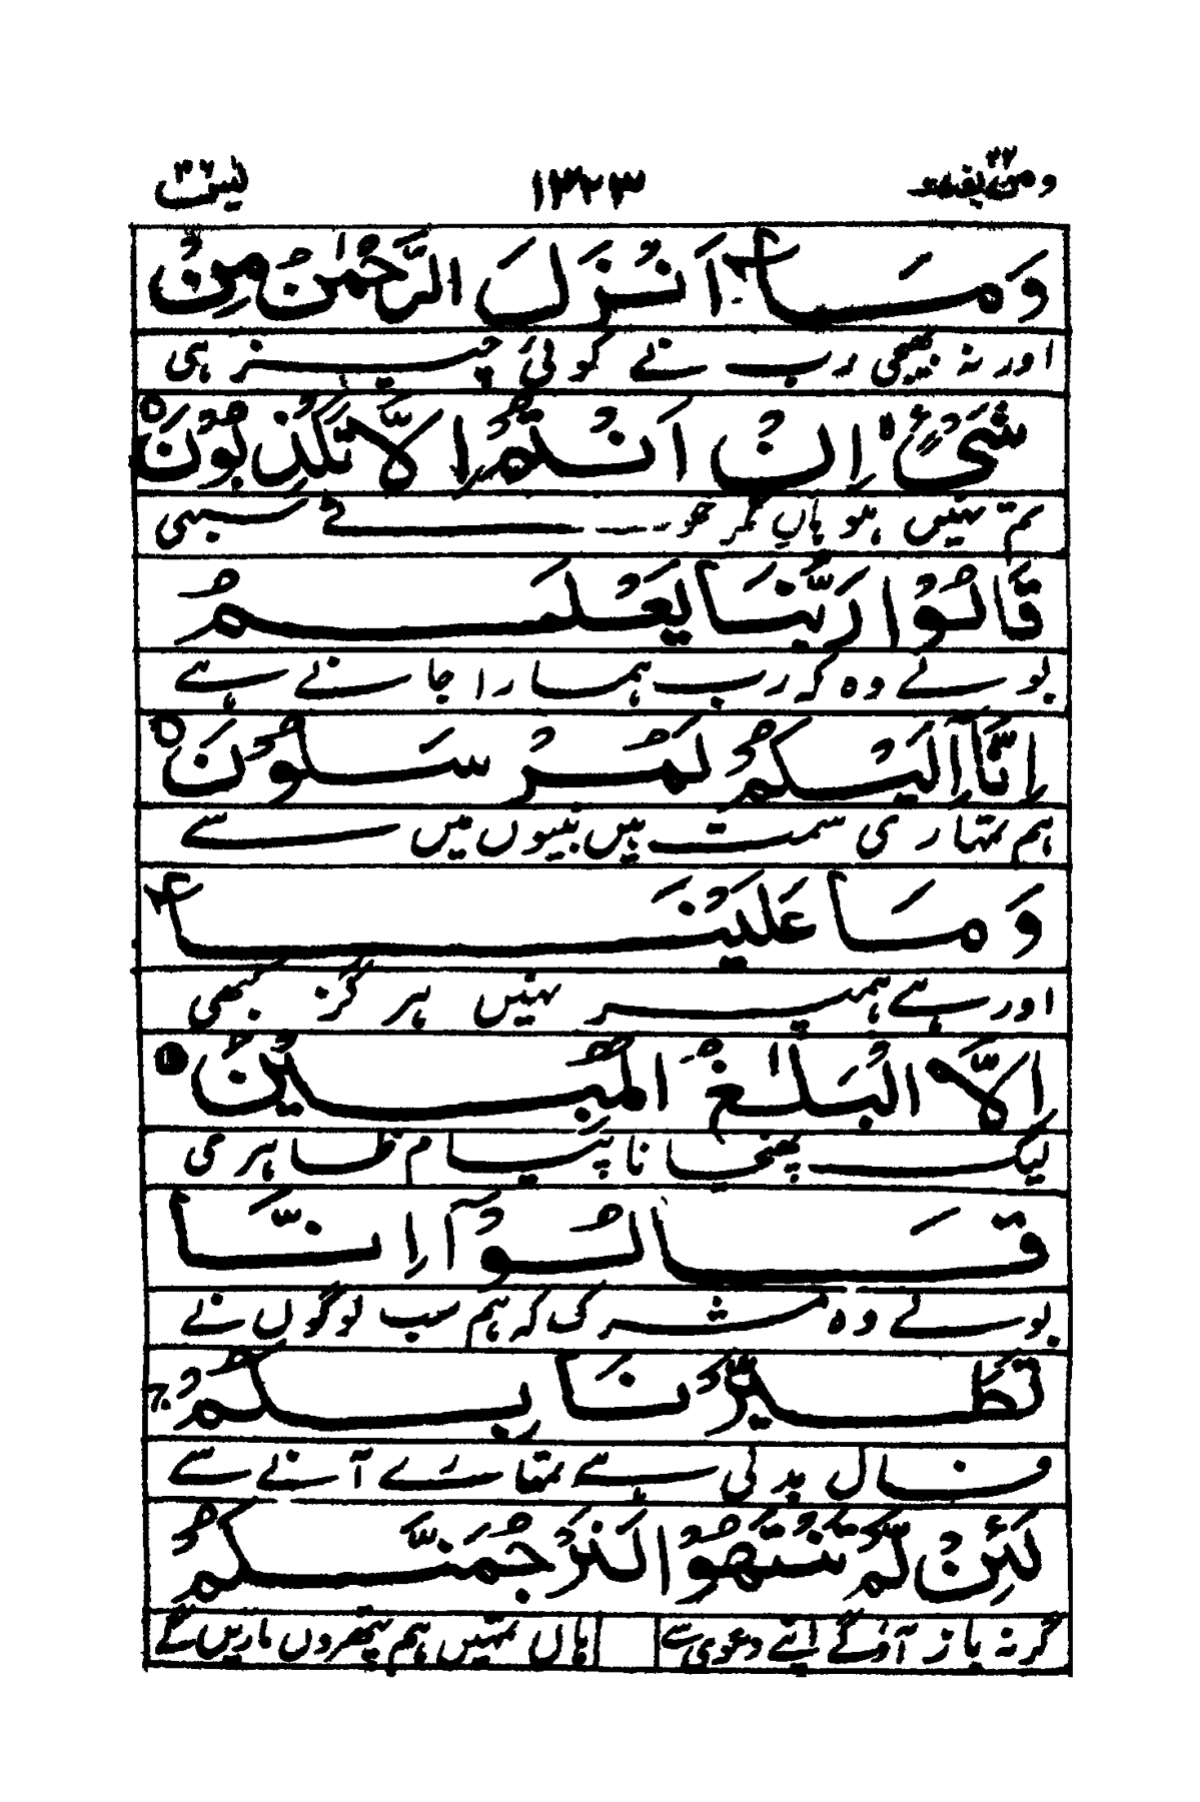 ومن یقنت ۲۲ ۱۳۲۳ یٰس ۳۶
وَمَآ اَنْزَلَ الرَّحْمٰنُ مِنْ
اور نہ بھیجی رب نے کوئی چیز ہی
شَیْءٍ اِنْ اَنْتُمْ اِلَّا تَكْذِبُوْنَ
تم نہیں ہو ہاں مگر جھوٹے سبھی
قَالُوْا رَبُّنَا یَعْلَمُ
بولے وہ کہ رب ہمارا جانے ہے
اِنَّآ اِلَیْكُمْ لَمُرْسَلُوْنَ
ہم تمہاری سمت ہیں نبیوں میں سے
وَمَا عَلَیْنَآ
اور ہے ہم پر نہیں ہرگز کبھی
اِلَّا الْبَلٰغُ الْمُبِیْنُ
لیک پہنچانا پیام ظاہر ہی
قَالُوْٓا اِنَّا
بولے وہ مشرک کہ ہم سب لوگوں نے
تَطَیَّرْنَا بِكُمْ
فال بد لی ہے تمہارے آنے سے
لَئِنْ لَّمْ تَنْتَهُوْا لَنَرْجُمَنَّكُمْ
گر نہ باز آؤگے اپنے دعوی سے ہاں تمہیں ہم پتھروں ماریں گے